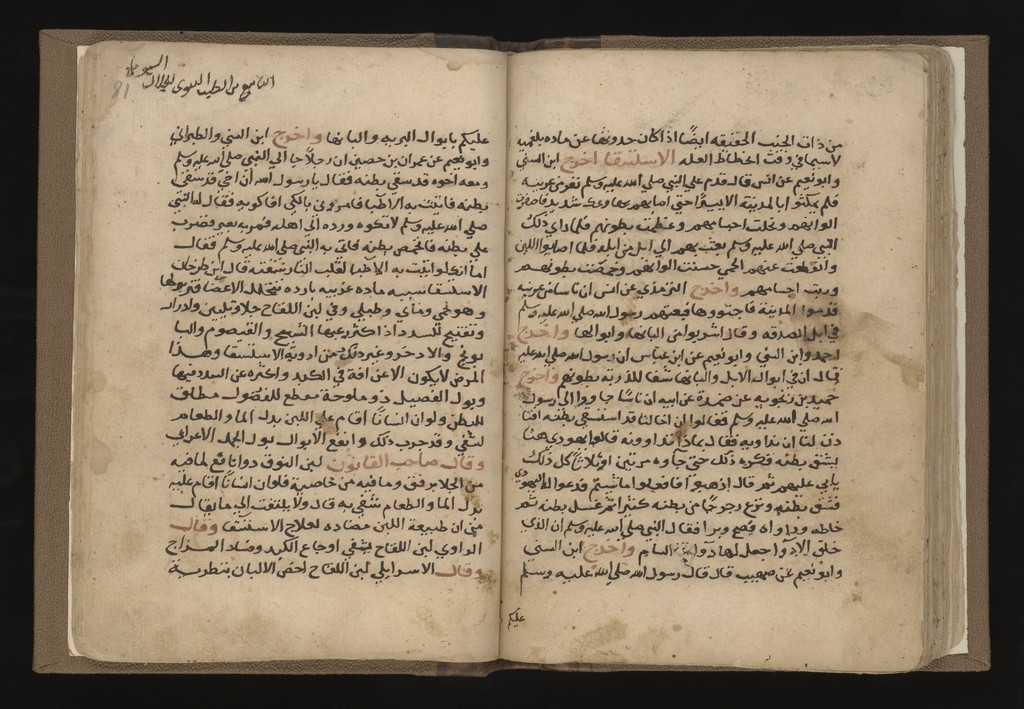 من ذات الجنب الحقيقيه ايضًا اذا كان حدوثها عن ماده بلغميه
لاسيما في وقت انحطاط العله الاستسقا اخرج ابن السني
وابو نعيم عن انس قال قدم علي النبي صلي الله عليه وسلم نفر من عرينه
فلم يمكثوا بالمدينة الا يسيرًا حتي اصابهم بها وعك شديد فاصفرت
الوانهم ونحلت اجسامهم وعظمت بطونهم فلما راي ذلك
النبي صلي الله عليه وسلم بعث بهم الي ابل من ابله فلما اصابوا اللبن
وانقطعت عنهم الحمي حسنت الوانهم وخمصت بطونهم
وربت اجسامهم واخرج الترمذي عن انس ان ناسا من عرينه
قدموا المدينة فاجتووها فبعثهم رسول الله صلي الله عليه وسلم
في ابل الصدقه وقال اشربوا من البانها وابوالها واخرج
احمد وابن السني وابو نعيم عن ابن عباس ان رسول الله صلي الله عليه
قال ان في ابوال الابل والبانها شفا للذربة بطونهم واخرج
حميد بن زنجويه عن ضمرة عن ابيه ان ناسًا جاووا الي رسول
الله صلي الله عليه وسلم فقالوا ان اخا لنا قد استسقي بطنه افتا
دن لنا ان نداويه فقال بماذا تداوونه قالوا يهودي هنا
يشق بطنه فكره ذلك حتي جاوه مرتين او ثلاثا كل ذلك
يابي عليهم ثم قال اذهبوا فافعلوا ما شيتم فدعوا له اليهودي
فشق بطنه ونزع رجرجًا من بطنه كثيرا ثم غسل بطنه ثم
خاطه وداواه فصح وبرا فقال النبي صلي الله عليه وسلم ان الذي
خلق الادوا جعل لها دوا السام واخرج ابن السني
وابو نعيم عن صهيب قال قال رسول الله صلي الله عليه وسلم
عليكم
السيوطي
الطب النبوي للجلال
81
عليكم بابوال البريه والبانها واخرج ابن السني والطبراني
وابو نعيم عن عمران بن حصين ان رجلا جا الي النبي صلي الله عليه وسلم
ومعه اخوه قد سقي بطنه فقال يا رسول الله ان اخي قد سقي
بطنه فاتيت به الاطبا فامروني بالكي افاكويه فقال له النبي
صلي الله عليه وسلم لا تكوه ورده الي اهله فمر به بعير فضرب
علي بطنه فانخمص بطنه فاتي به النبي صلي الله عليه وسلم فقال
اما انك لو اتيت به الاطبا لقلت النار شفته قال ابن طرخان
الاستسقا سببه ماده غريبه بارده تتخلل الاعضا فتربو لها
وهو لحمي ومائي وطبلي وفي لبن اللقاح جلا وتليين وادرار
وتفتيح للسدد اذ اكثر رعيها الشيح والقيصوم والبا
بونج والاذخر وغير ذلك من ادوية الاستسقا وهذا
المرض لا يكون الا عن افة في الكبد واكثره عن السدد فيها
وبول الفصيل ذو ملوحة مقطع للفضول مطلق
للبطن ولو ان انسانًا اقام علي اللبن بدل الما والطعام
لشفي وقد جرب ذلك وانفع الابوال بول الجمل الاعرابي
وقال صاحب القانون لبن النوق دوا نافع لما فيه
من الجلا برفق وما فيه من خاصية فلو ان انسانًا اقام عليه
بدل الما والطعام شفي به قال ولا يلتفت الي ما يقال
من ان طبيعة اللبن مضاده لعلاج الاستسقا وقال
الرازي لبن اللقاح يشفي اوجاع الكبد وفساد المزاج
وقال الاسرايلي لبن اللقاح اخص الالبان بتطرية